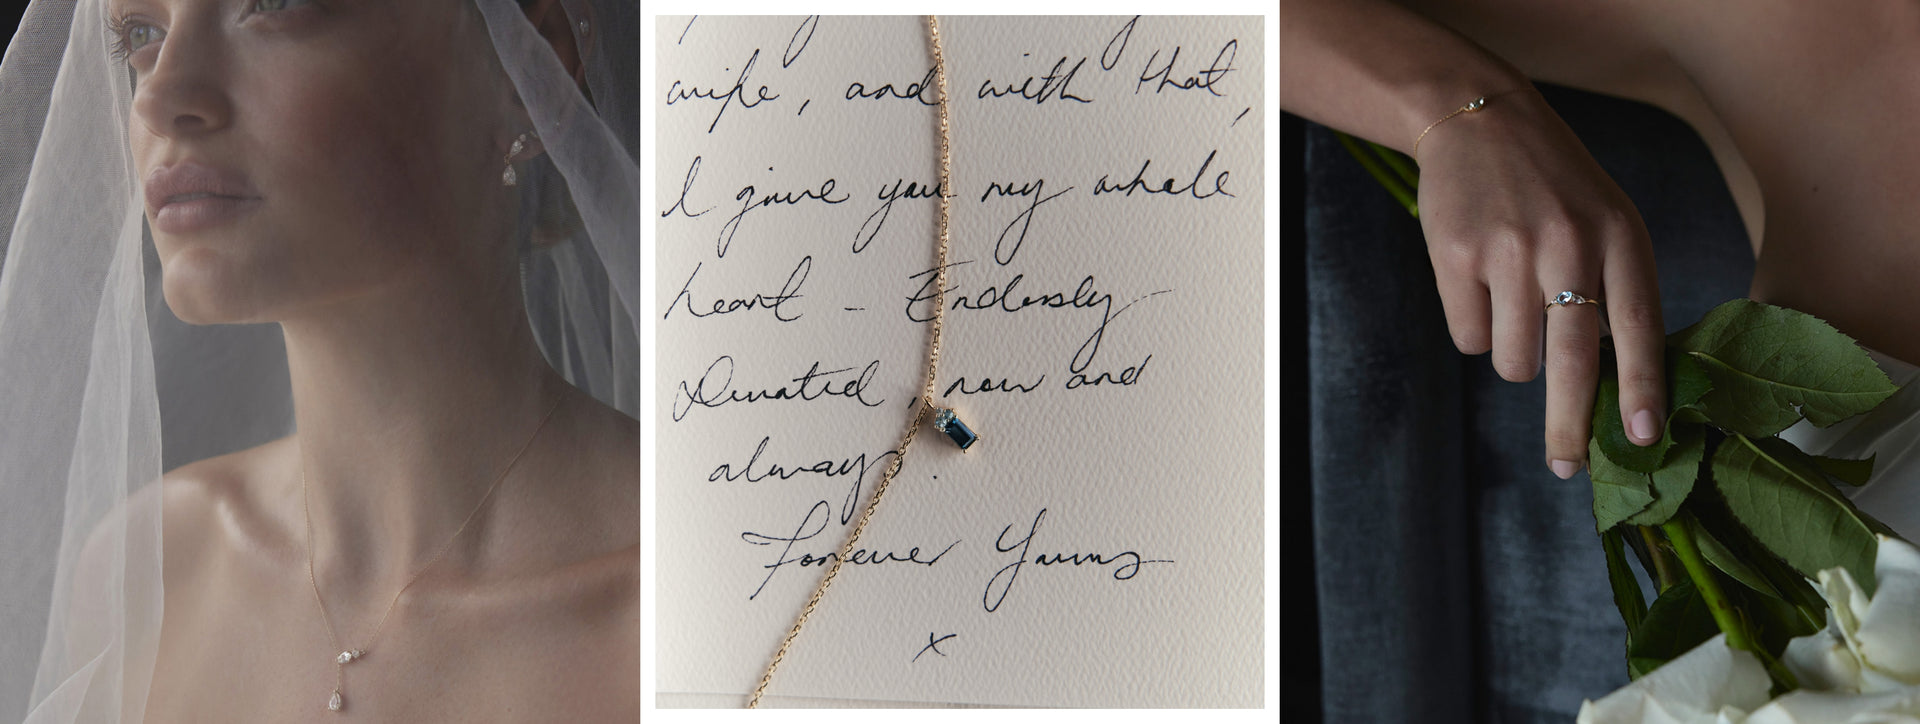 wife, and with that,
I give you my whole
heart - Endlessly
Devoted, now and
always.
Forever Yours
x